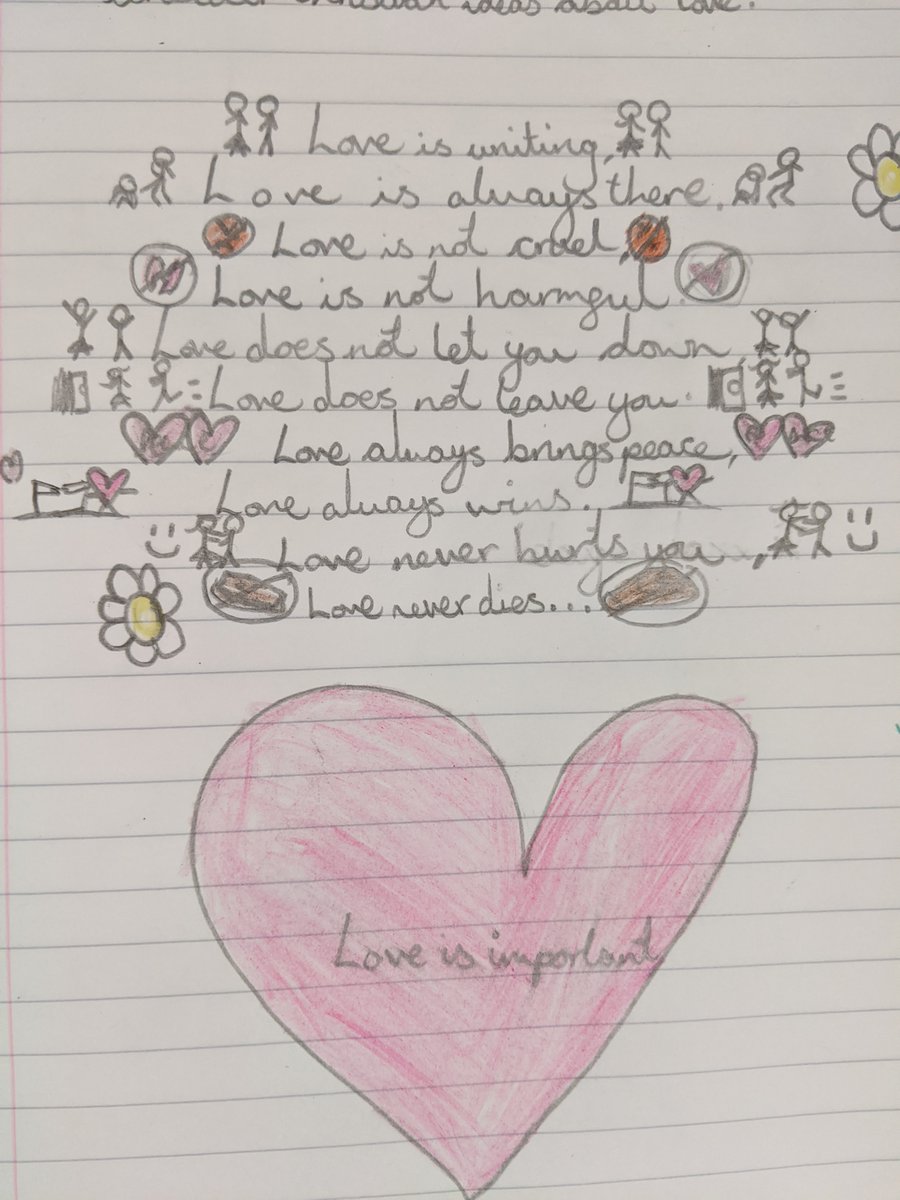 ideas about love.
Love is uniting,
Love is always there.
Love is not cruel,
Love is not harmful.
Love does not let you down,
Love does not leave you.
Love always brings peace,
Love always wins.
Love never hurts you,
Love never dies...
Love is important